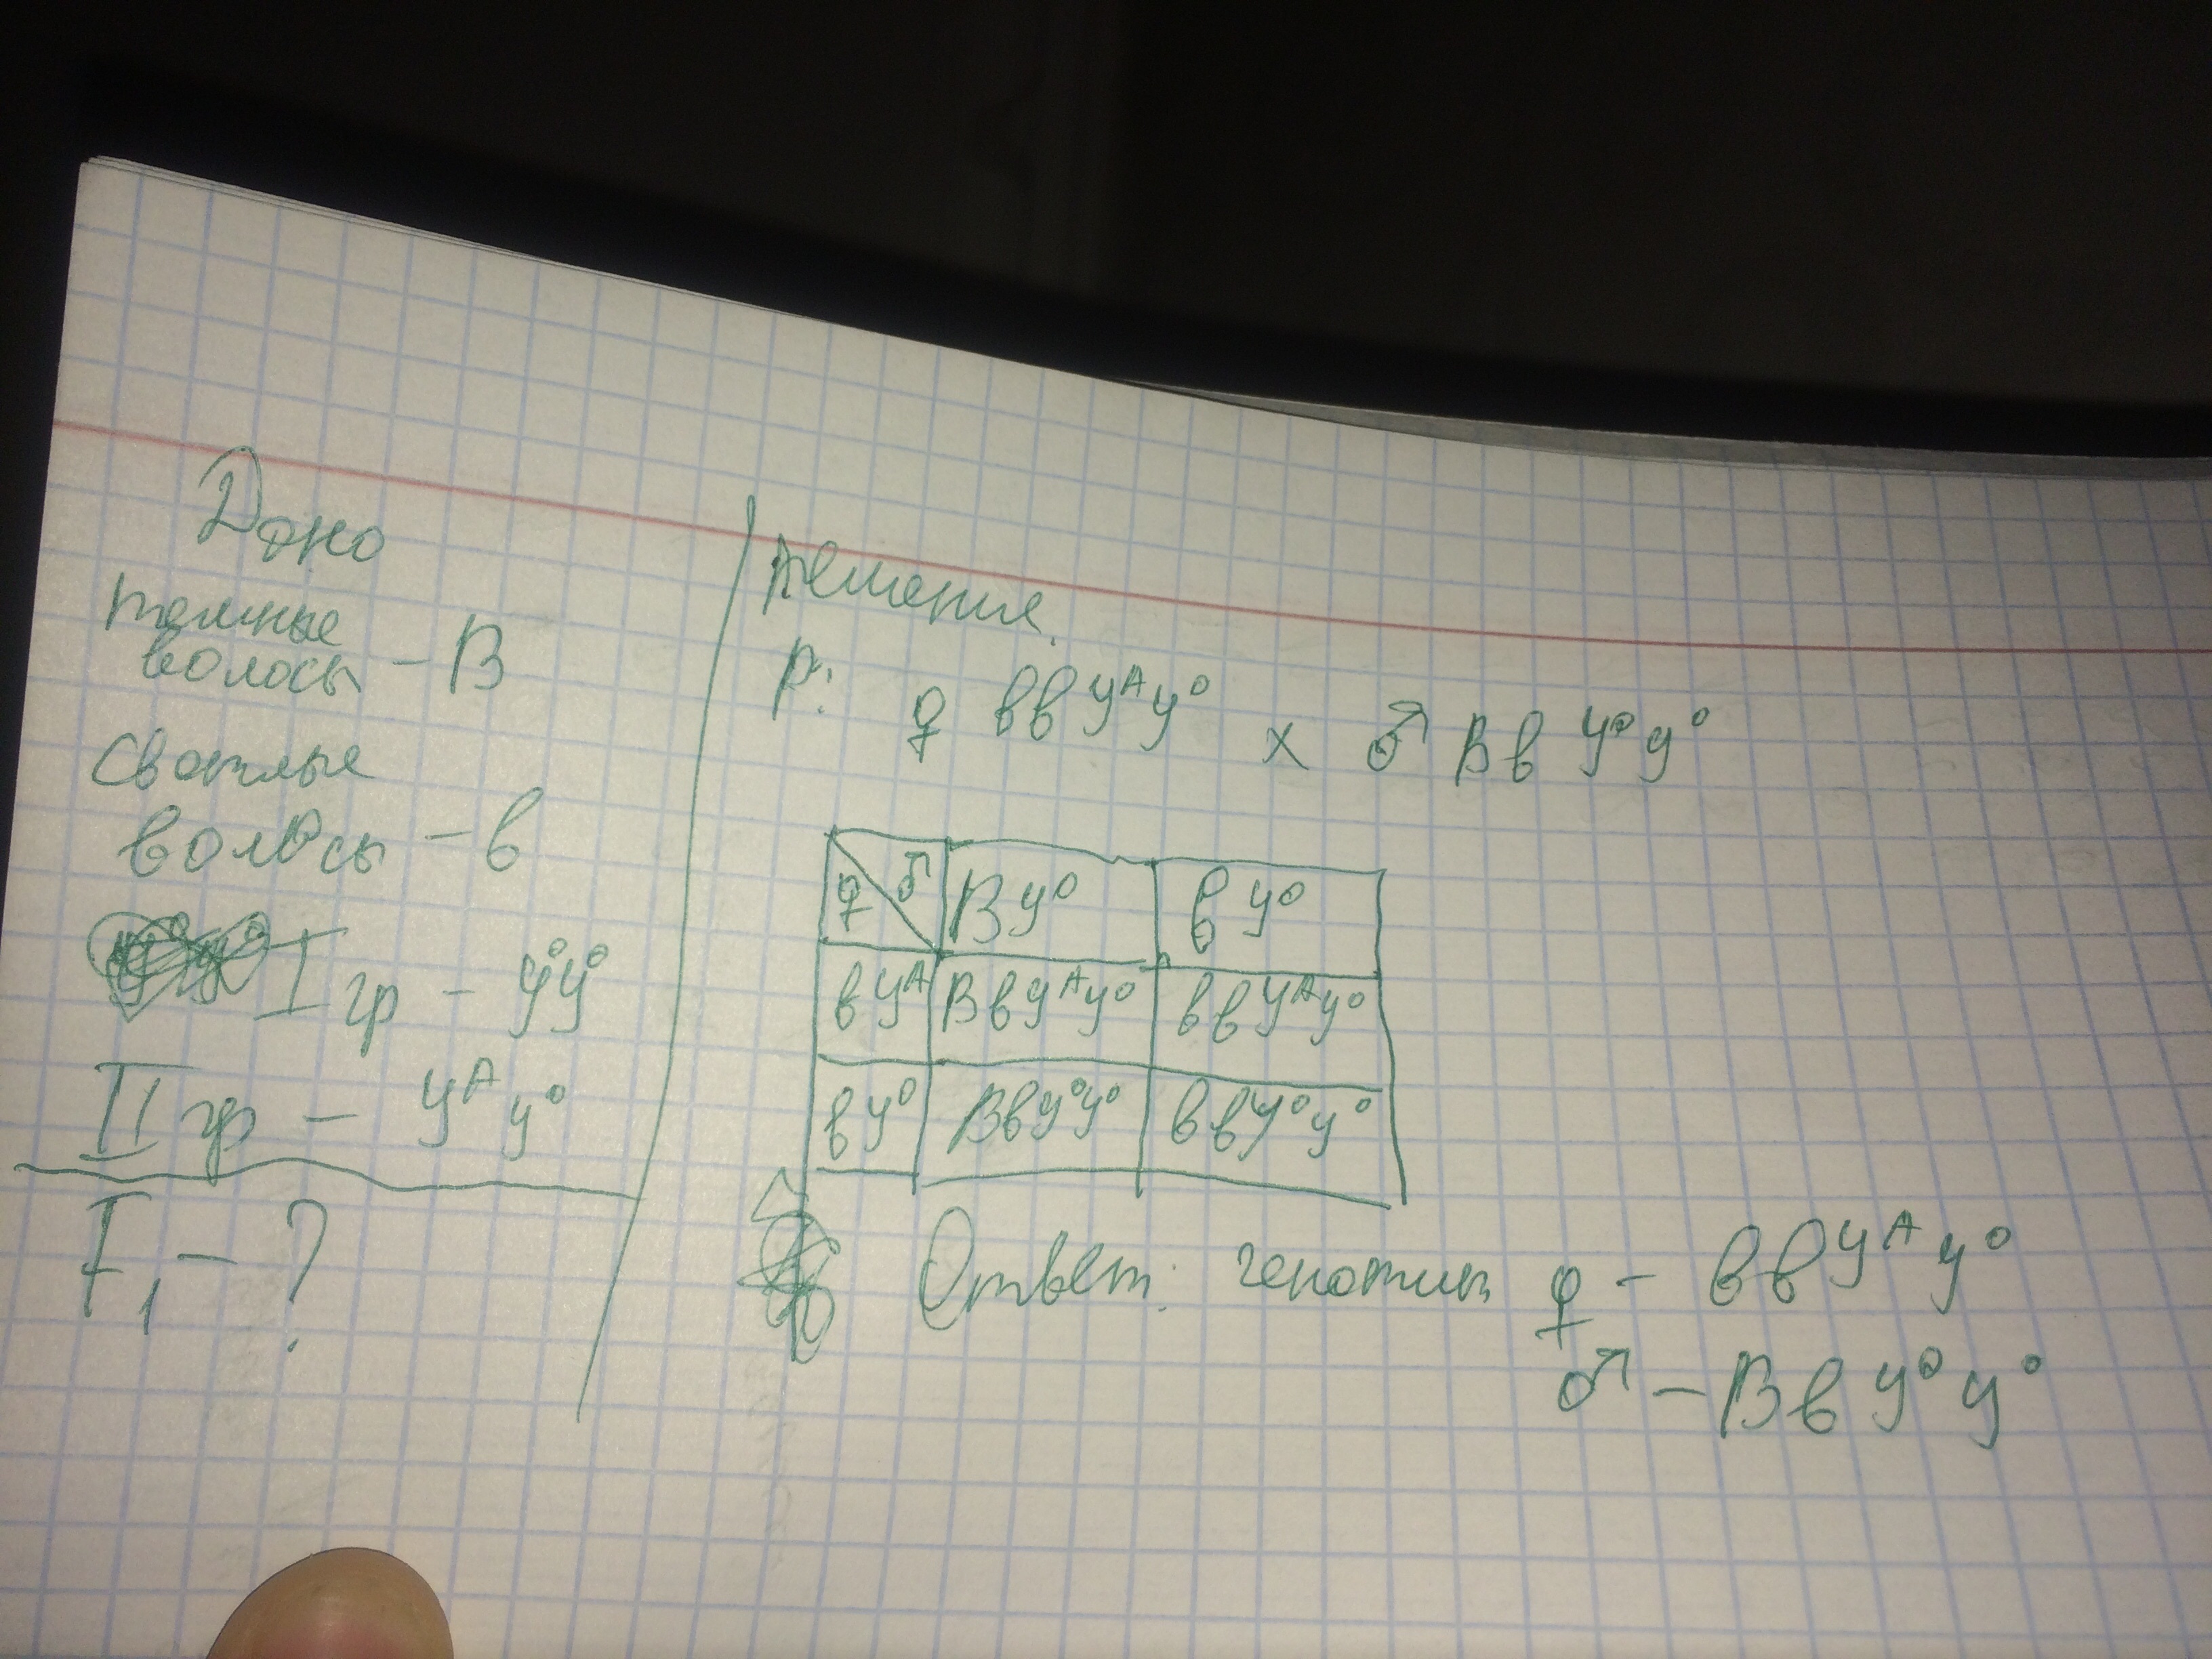 Дано
темные
волосы - В
Светлые
волосы - в
I гр - У⁰У⁰
II гр - Уᴬу⁰
F₁ - ?
Решение.
P: ♀ вв Уᴬу⁰ x ♂ Вв У⁰у⁰
♀ ♂ Ву⁰ ву⁰
вуᴬ ВвУᴬу⁰ ввУᴬу⁰
ву⁰ Вву⁰у⁰ ввУ⁰у⁰
Ответ: генотип ♀ - ввУᴬу⁰
♂ - Вву⁰у⁰